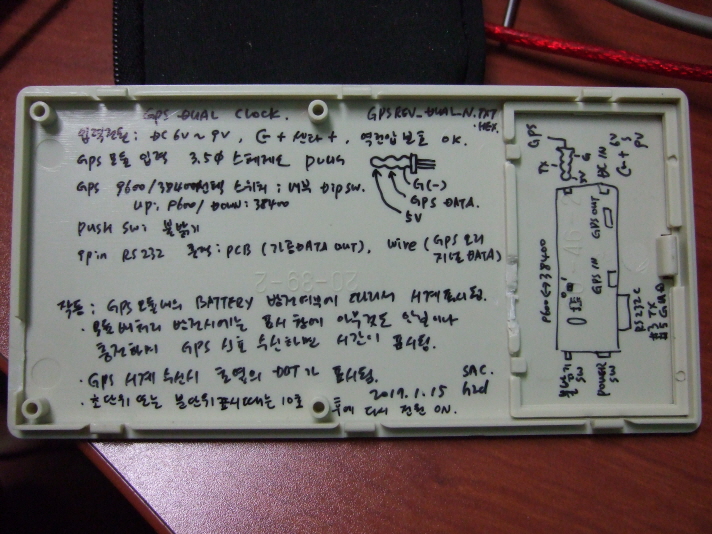 GPS DUAL CLOCK. GPSREV_DUAL_N.TXT
.HEX.
입력전원: DC 6V ~ 9V, G- + 센타 +, 역전압 보호 OK.
GPS 모듈 입력 3.5Ø 스테레오 PLUG
GPS 9600/38400선택 스위치: 내부 DIP SW.
UP: 9600/DOWN: 38400
G(-)
GPS DATA.
5V
PUSH SW: 불밝기
9pin RS232 출력: PCB (가공DATA OUT), WIRE (GPS 오리지널 DATA)
20-89-2
작동: GPS 모듈내의 BATTERY 방전여부에 따라서 시계표시됨.
· 모듈 배터리 방전시에는 표시창에 아무것도 안보이나
충전하며 GPS 신호 수신하면 시간이 표시됨.
· GPS 시계 수신시 초열의 DOT가 표시됨.
· 초단위 또는 분단위표시때는 10초후에 다시 전원 ON.
SAC.
2017.1.15
GPS
TX
G
5V
DC IN
6V
9V
GPS OUT
GPS IN
9600↔38400
RS232C
#3 TX
#5 GND
불밝기
SW
POWER
SW